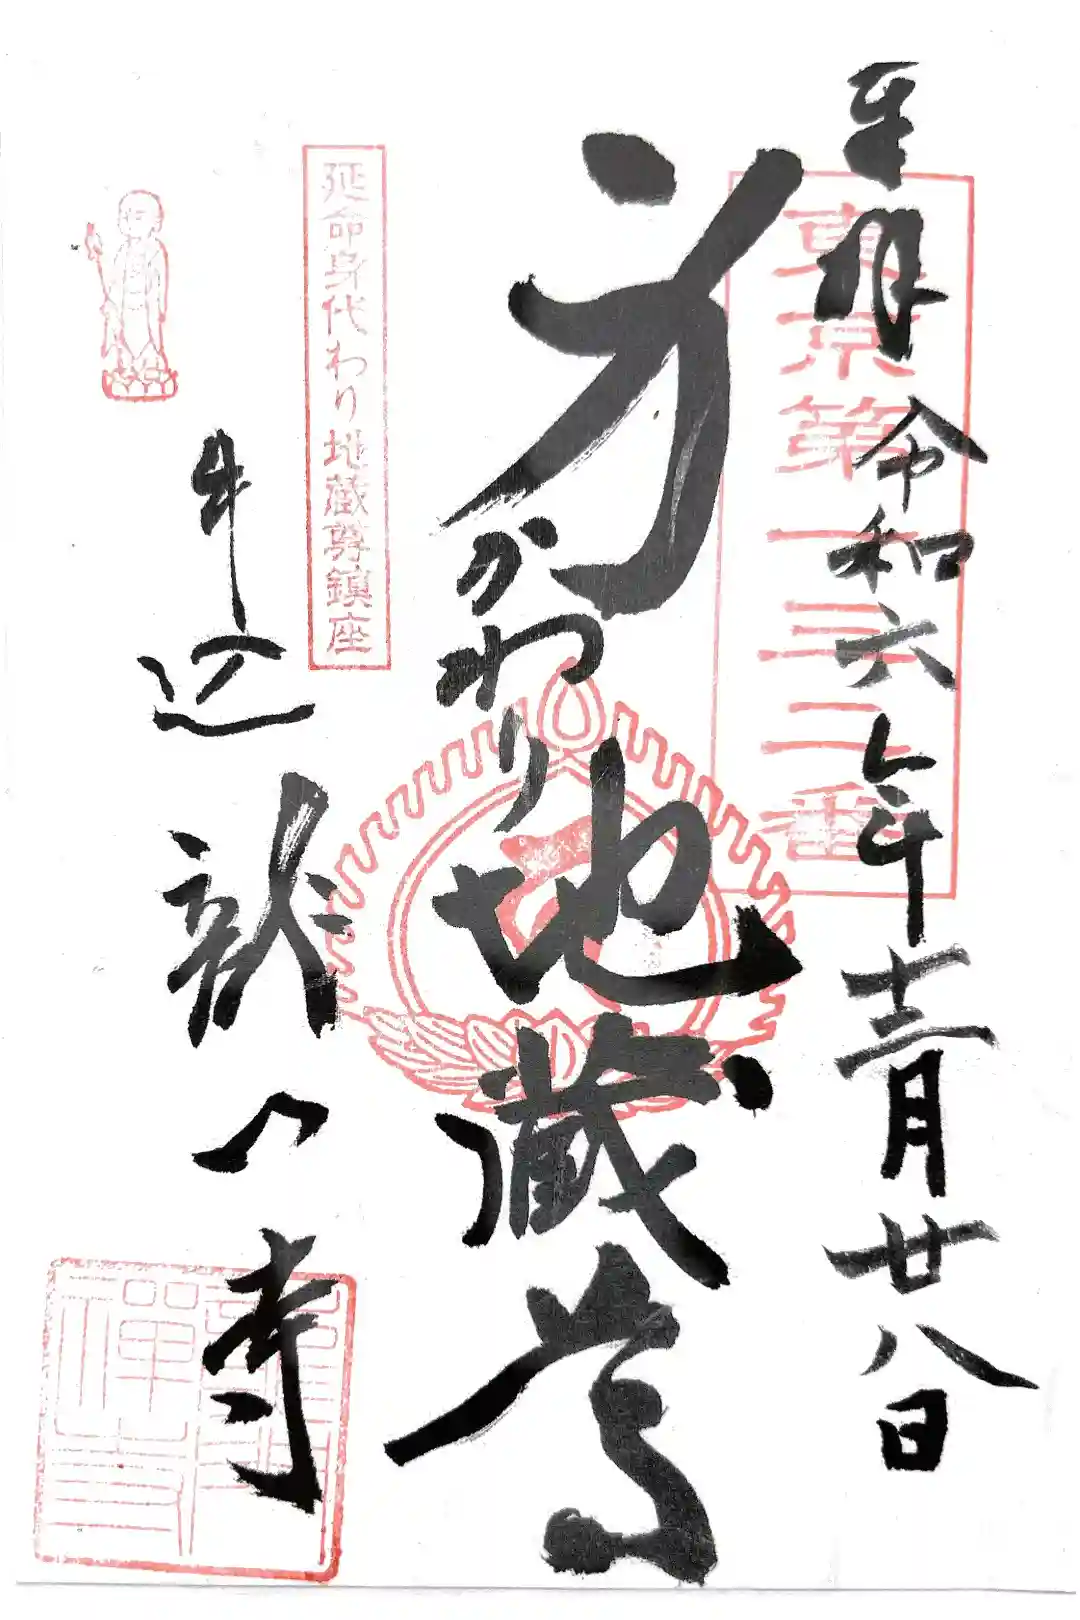 奉拝 令和六年十二月廿八日
東京第一三二番
身かわり地蔵堂
延命身代わり地蔵尊鎮座
牛込 龍門寺